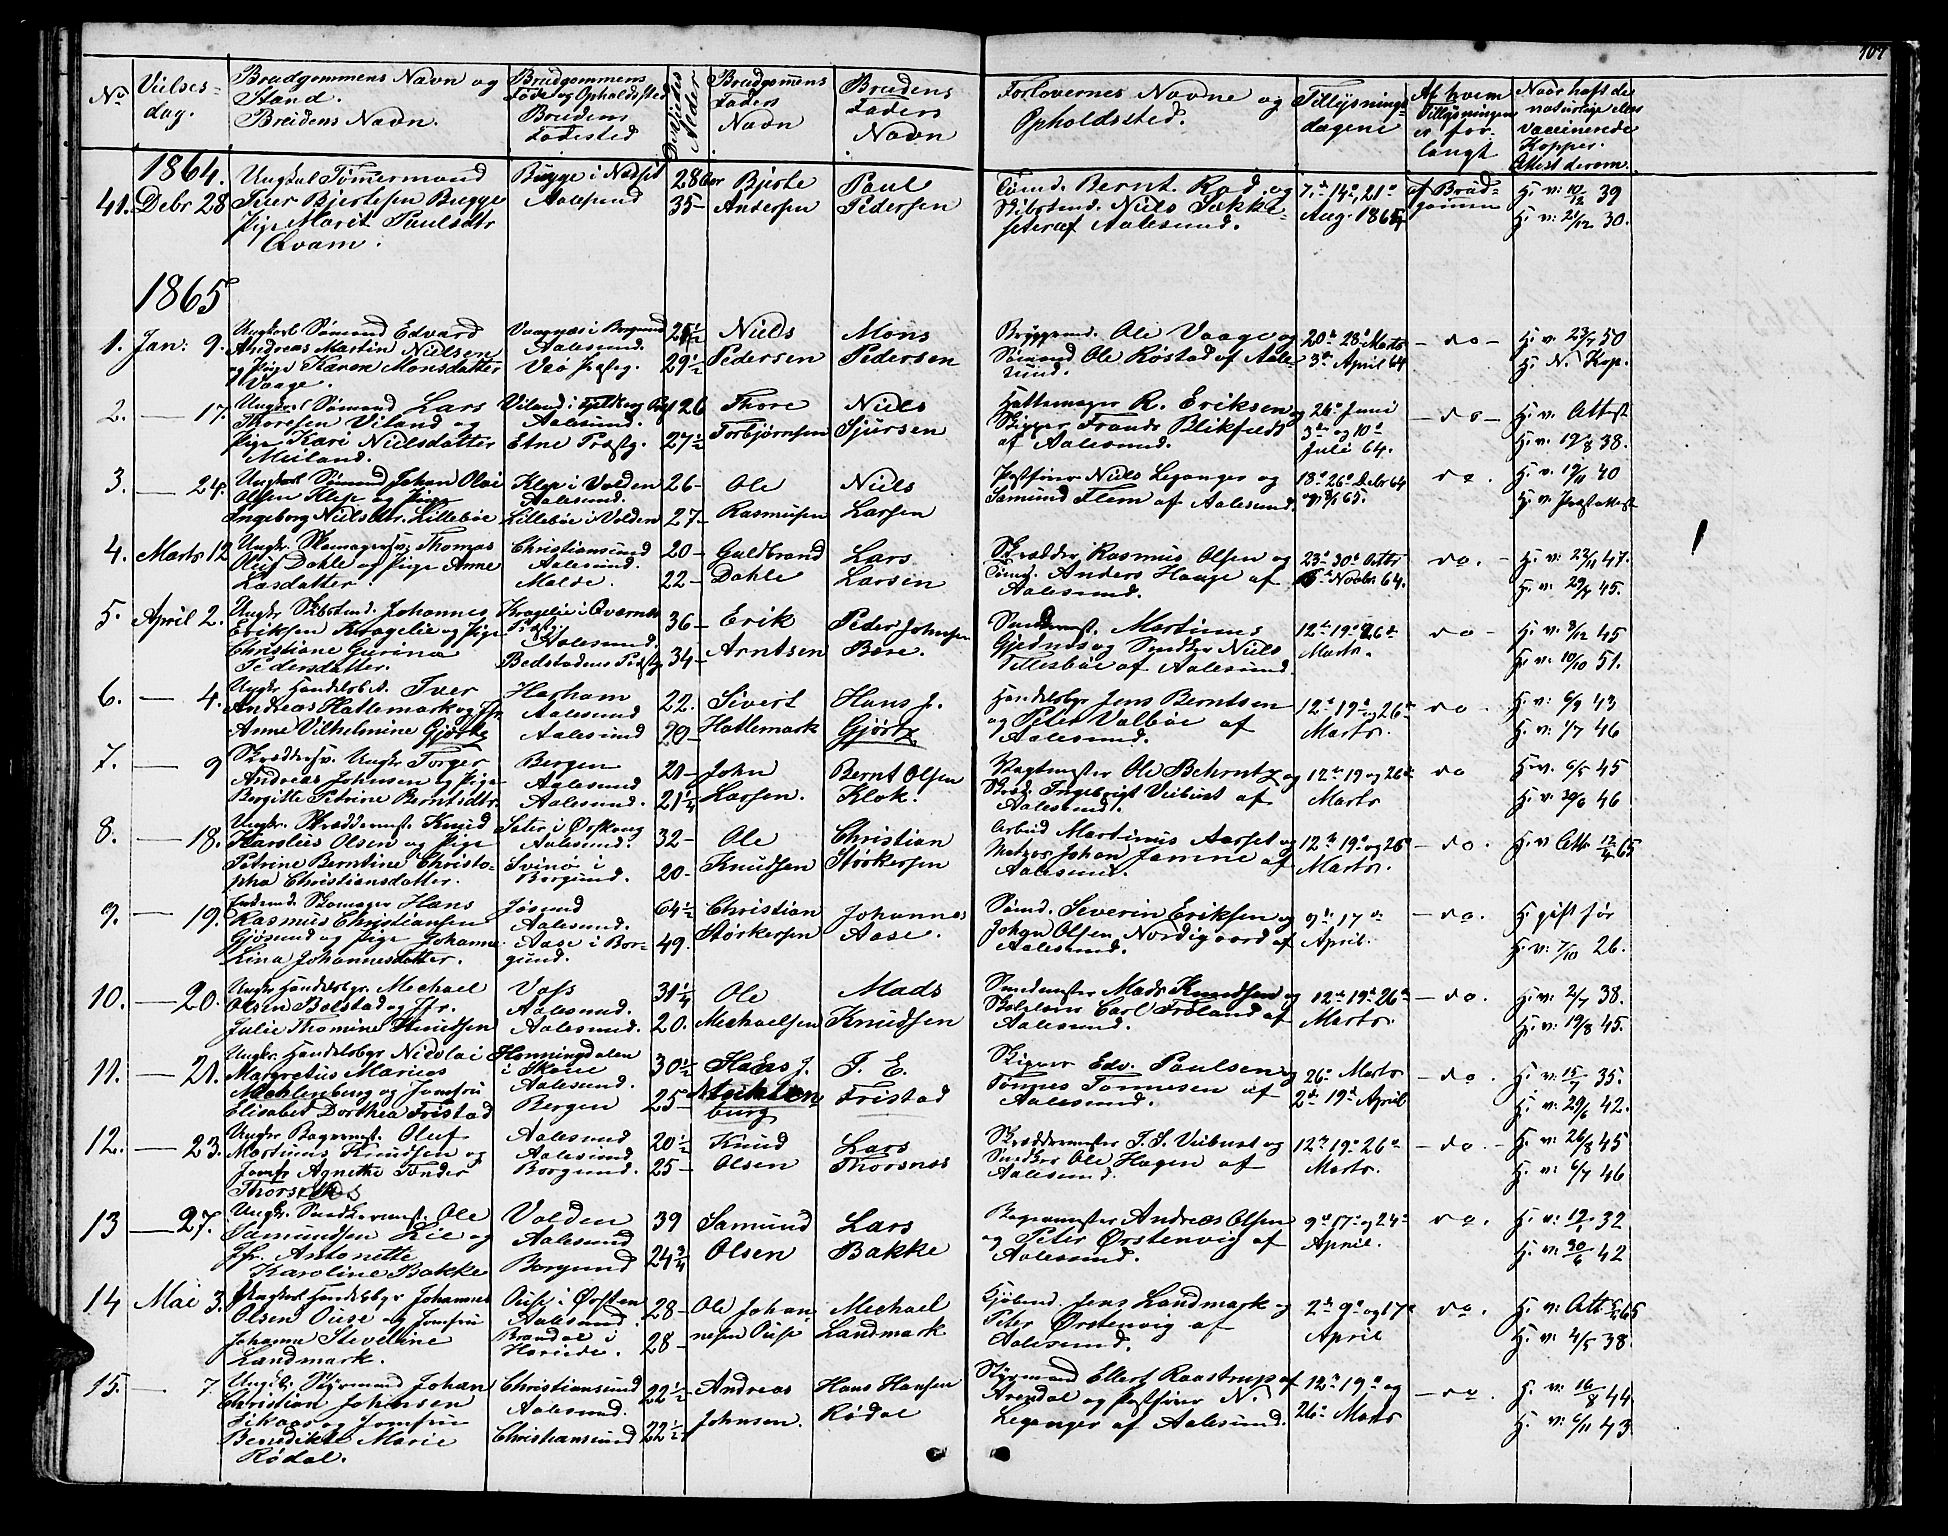 107
No
Vielses-
dag.
Brudgommens Navn og
Stand.
Brudens Navn.
Brudgommens
Føde og Opholdssted
Brudens
Fødested
Deres
Alder
Brudgommens
Faders
Navn
Brudens
Faders
Navn
Forlovernes Navne og
Opholdssted.
Tillysnings-
dagene
Af hvem
Tillysningen
er for-
langt
Naar haft de
naturlige eller
vaccinerede
Kopper.
Attest derom.
1864.
41. Debr 28
Ungkal Tømmermand
Iver Bjertesen Bugge
Pige Marit Paulsdtr
Qvam.
Bugge i Nædset
Aalesund
28 aar
35-
Bjerte
Andersen
Paul
Pedersen
Tømd. Bernt Rod og
Skibstmd. Niels Sække-
seter af Aalesund.
7de 14de, 21de
Aug. 1864
af Brud-
gommen
H. v: 10/12 39
H. v: 21/12 30.
1865
1. Jan: 9.
Ungkarl Sømand Edvard
Andreas Martin Nielsen
og Pige Karen Monsdatter
Vaage.
Vaagnæs i Borgund
Aalesund.
Veø Præsteg.
25 1/2
29 1/2
Niels
Pedersen
Mons
Pedersen
Bryggemd. Ole Vaage og
Sømand Ole Røstad af Aale-
sund.
20de 28de Marts
3de April 64
- do -
H. v: 23/7 50
H. N. Kop.
2. — 17.
Ungkarl Sømand Lars
Thoresen Viland og
Pige Kari Nielsdatter
Meiland.
Aalesund.
Etne Præstg.
26
27 1/2
Thore
Torbjørnsen
Niels
Sjursen
Hattemager R. Eriksen og
Skipper Frands Blikfeldt
af Aalesund.
26de Juni
3de og 10de
Juli 64.
- do -
H. v. Attest
H. v. 19/8 38.
3. — 24.
Ungkarl Sømand Johan Olai
Olsen Klep og Pige
Ingeborg Nielsdtr. Lillebøe
Klep i Volden
Aalesund.
Lillebøe i Volden
26-
27-
Ole
Rasmusen
Niels
Larsen
Postfører Niels Leganger og
Samund Flem af Aalesund.
18de 26de Debr 64
og 8/1 65.
do.
H. v. 19/11 40
H. v. Præsteattest
4. Marts 12
Ungkr. Skomagersv. Thomas
Oluf Dahle og Pige Anne
Larsdatter.
Christiansund
Aalesund.
Molde.
20-
22-
Guldbrand
Dahle
Lars
Larsen
Skrædder Rasmus Olsen og
Tømd. Anders Hauge af
Aalesund.
23de 30de Octbr
6de Novbr 64.
do. -
H. v: 22/11 47.
H. v: 29/8 45.
5. April 2.
Ungkr. Skibstmd. Johannes
Eriksen Kragelie og Pige
Christiane Gurina
Pedersdatter.
Kragelie i Qværnes
Præstg.
Aalesund.
Bedstadens Præstg.
36-
34-
Erik
Arntsen
Peder Johnsen
Børe.
Sundkermst. Martinus
Gjednes og Snedker Niels
Tillesbøe af Aalesund.
12te 19de 26de
Marts.
do -
H. v: 8/12 45
H. v: 10/10 51.
6. — 4.
Ungkr. Handelsbet. Iver
Andreas Hatlemark og Jfr.
Anne Vilhelmine Gjørtz
Harham
Aalesund
Aalesund
22.
20-
Sivert
Hatlemark
Hans J.
Gjørtz
Handelsbgr Jens Berntsen
og Peter Valbøe af
Aalesund.
12te 19de og 26de
Marts.
- do -
H. v: 6/9 43
H. v: 1/7 46
7. — 9
Skræddersv. Ungkr Torger
Andreas Johnsen og Pige
Bergitte Petrine Berntsdtr.
Bergen
Aalesund
Aalesund.
20-
21 1/4
John
Larsen.
Bernt Olsen
Klok.
Vagtmester Ole Behrntz og
Skrd. Ingebrigt Viebust af
Aalesund.
12te 19 og 26de
Marts
do
H. v. 6/5 45
H. v: 30/6 46
8. — 18.
Ungkr. Skræddermst. Knud
Karolius Olsen og Pige
Petrine Berntine Christo-
pha Christiansdatter.
Seter i Ørskoug
Aalesund.
Svinø i
Borgund.
32-
20-
Ole
Knudsen
Christian
Størkersen
Arbmd Martinus Aarset og
Matros Johan Jamne af
Aalesund.
12te 19de og 26
Marts.
- do.
H. v Att. 12/4 65
9. — 19.
Enkemd. Skomager Hans
Rasmus Christiansen
Gjøsund og Pige Johanne
Lina Johannesdatter.
Jøsund
Aalesund.
Aase i Bor-
gund.
64 1/2
49.
Christian
Størkersen
Johannes
Aase.
Sømd. Severin Eriksen og
John Olsen Nordigaard af
Aalesund.
9de 17de
April.
- do.
H. gift før
H. v: 7/10 26.
10. — 20.
Ungkr Handelsbgr. Mechael
Olsen Bolstad og Jfr.
Julie Thomine Knudsen
Vofs
Aalesund.
Aalesund.
31 1/4
20.
Ole
Mechaelsen
Mads
Knudsen
Sundmester Mads Knudsen og
Skolelærer Carl Frøland af
Aalesund.
12te 19de 26de
Marts.
- do.
H. v: 2/7 38.
H. v: 19/8 45.
11. — 21.
Ungkr. Handelsbgr Nicolai
Margretus Marius
Mechlenburg og Jomfru
Elisabet Dorthea Fristad
Henningdalen
i Skøue
Aalesund.
Bergen
30 1/2
25-
Hans J.
Mecklen-
burg
J. E.
Fristad
Skipper Edv. Paulsen og
Tønnes Tønnesen af
Aalesund.
26de Marts
2de 19de April
- do.
H. v: 15/7 35.
H. v: 29/6 42.
12. — 23.
Ungkr. Bagermst. Oluf
Martinus Knudsen og
Jomfr Agnethe Tønder
Thorsnes
Aalesund
Aalesund
Borgund.
20 1/2
25-
Knud
Olsen
Lars
Thorsnes
Skræddermester J. S. Viebust og
Snedker Ole Hagen af
Aalesund.
12te 19de 26de
Marts.
- do -
H. v: 26/8 45
H. v: 6/7 46
13 — 27.
Ungkr. Snedkermst. Ole
Samundsen Lie og
Jfr. Antonette
Karoline Bakke
Volden
Aalesund
Borgund
39
24 3/4
Samund
Olsen
Lars
Bakke
Bagermester Andreas Olsen
og Peter Ørstenvig af
Aalesund.
9de 17de og 24de
April.
do.
H. v: 19/1 32
H. v: 30/6 42
14 Mai 3.
Ungkarl Handelsbgr Johannes
Olsen Ouse og Jomfru
Johanna Stevelline
Landmark.
Ouse i Ørsten
Aalesund.
Brandal i
Hareide.
28-
28-
Ole Johan
nesen Ouse
Mechael
Landmark
Kjøbmd. Jens Landmark og
Peter Ørstenvig af
Aalesund.
2de 9de og 17de
April
do.
H. v: Att 5/4 65
H. v: 4/5 38.
15. — 7.
Ungk. Styrmand Johan
Christian Johnsen
Sikaas og Jomfru
Benedikte Marie
Rødal.
Christiansund
Aalesund.
Christiansund
22 1/2
22 1/2
Andreas
Johnsen.
Hans Hansen
Rødal
Styrmand Ellert Raastrup af
Arendal og Postfører N.
Leganger af Aalesund.
12te 19de og
26de Marts
- do.
H. v: 16/8 44
H. v: 6/11 43.